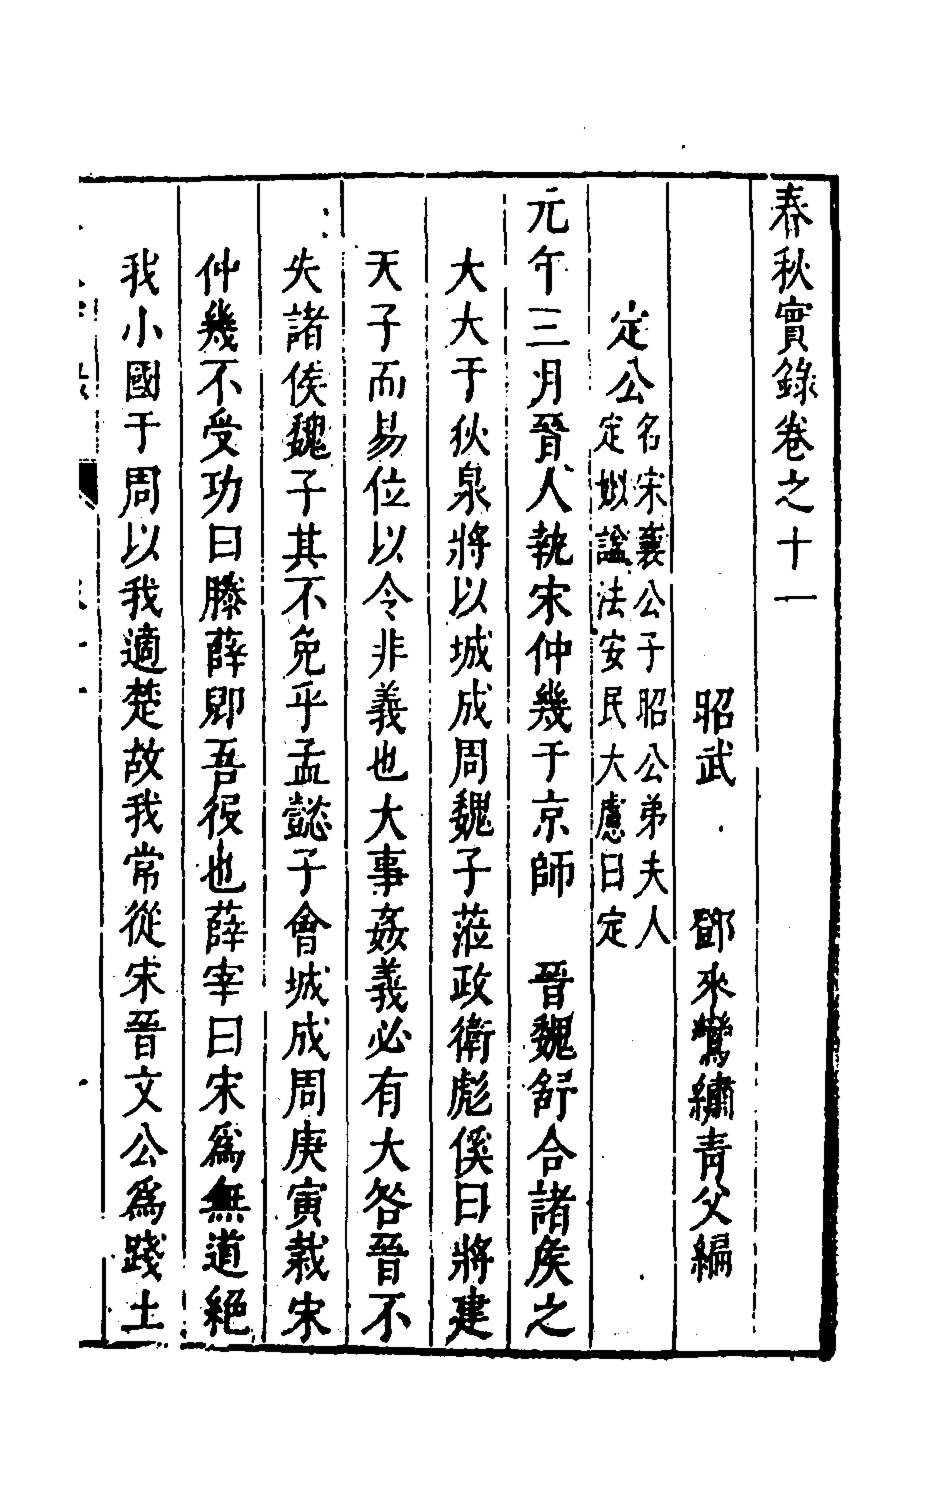 春秋實錄卷之十一
昭武 鄧來鸞繡青父編
定公名宋襄公子昭公弟夫人
定姒諡法安民大慮曰定
元年三月晉人執宋仲幾于京師 晉魏舒合諸侯之
大夫于狄泉將以城成周魏子蒞政衛彪傒曰將建
天子而易位以令非義也大事姦義必有大咎晉不
失諸侯魏子其不免乎孟懿子會城成周庚寅栽宋
仲幾不受功曰滕薛郳吾役也薛宰曰宋為無道絕
我小國于周以我適楚故我常從宋晉文公為踐土